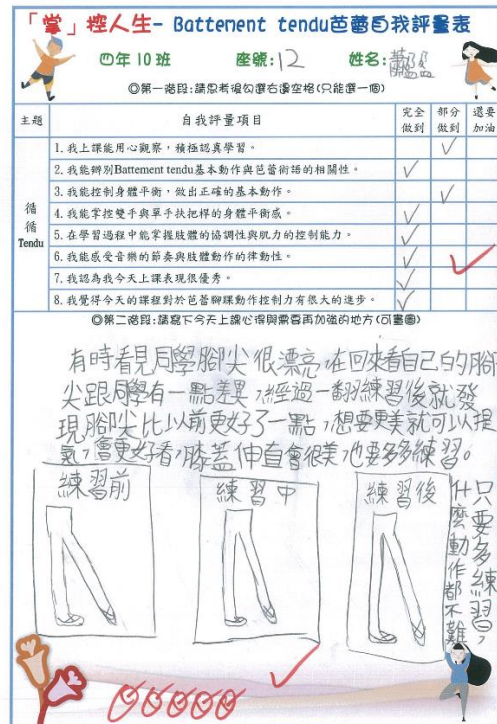 「掌」控人生- Battement tendu芭蕾自我評量表
四年10班 座號:12 姓名:
◎第一階段:請思考後勾選右邊空格(只能選一個)
主題 自我評量項目 完全做到 部分做到 還要加油
循循Tendu
1. 我上課能用心觀察，積極認真學習。
2. 我能辨別Battement tendu基本動作與芭蕾術語的相關性。
3. 我能控制身體平衡，做出正確的基本動作。
4. 我能掌控雙手與單手扶把桿的身體平衡感。
5. 在學習過程中能掌握肢體的協調性與肌力的控制能力。
6. 我能感受音樂的節奏與肢體動作的律動性。
7. 我認為我今天上課表現很優秀。
8. 我覺得今天的課程對於芭蕾腳踝動作控制力有很大的進步。
◎第二階段:請寫下今天上課心得與需要再加強的地方(可畫圖)
有時看見同學腳尖很漂亮,在回來看自己的腳
尖跟同學有一點差異,經過一翻練習後就發
現腳尖比以前更好了一點,想要更美就可以提
氣,會更好看,膝蓋伸直會很美,也要多多練習。
練習前
練習中
練習後
只要多練習,
什麼動作都不難